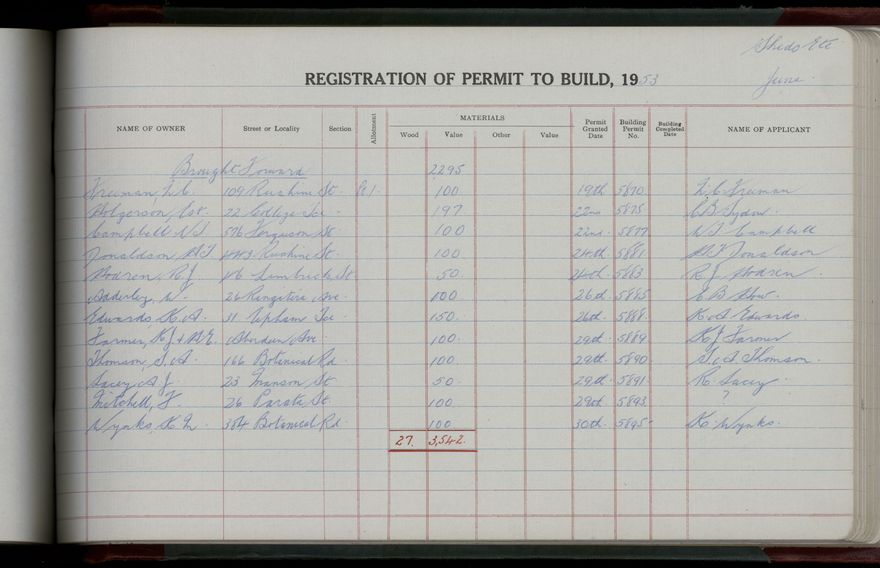 Sheds Etc
REGISTRATION OF PERMIT TO BUILD, 1953 June
NAME OF OWNER Street or Locality Section Allotment MATERIALS Wood Value Other Value Permit Granted Date Building Permit No. Building Completed Date NAME OF APPLICANT
Brought Forward 2295
Freeman, L.C. 109 Ruahine St. 100 19th 5870 L.C. Freeman
Holgerson, Est. 22 College Tce 197 22nd 5875
Campbell N.S. 576 Ferguson St. 100 22nd 5877 N.S. Campbell
Donaldson 443 Ruahine St. 100 24th 5881 Donaldson
Hodren, R.J. 46 Limbrick St 50 24th 5883 R.J. Hodren
Adderley, W. 26 Rangitira Ave. 100 26th 5885
Edwards K.A. 31 Upham Tce 150 26th 5888 K.A. Edwards.
Farmer, K.J. & M.E. Aberdeen Ave 100 29th 5889 K.J. Farmer
Thomson, S.A. 166 Botanical Rd 100 29th 5890 S.A. Thomson.
Sacey, A.J. 23 Manson St 50 29th 5891 R. Sacey
Mitchell, F 26 Parata St. 100 29th 5893 ?
Wynks, K.M. 384 Botanical Rd. 100 30th 5895 K. Wynks.
27. 3,542.